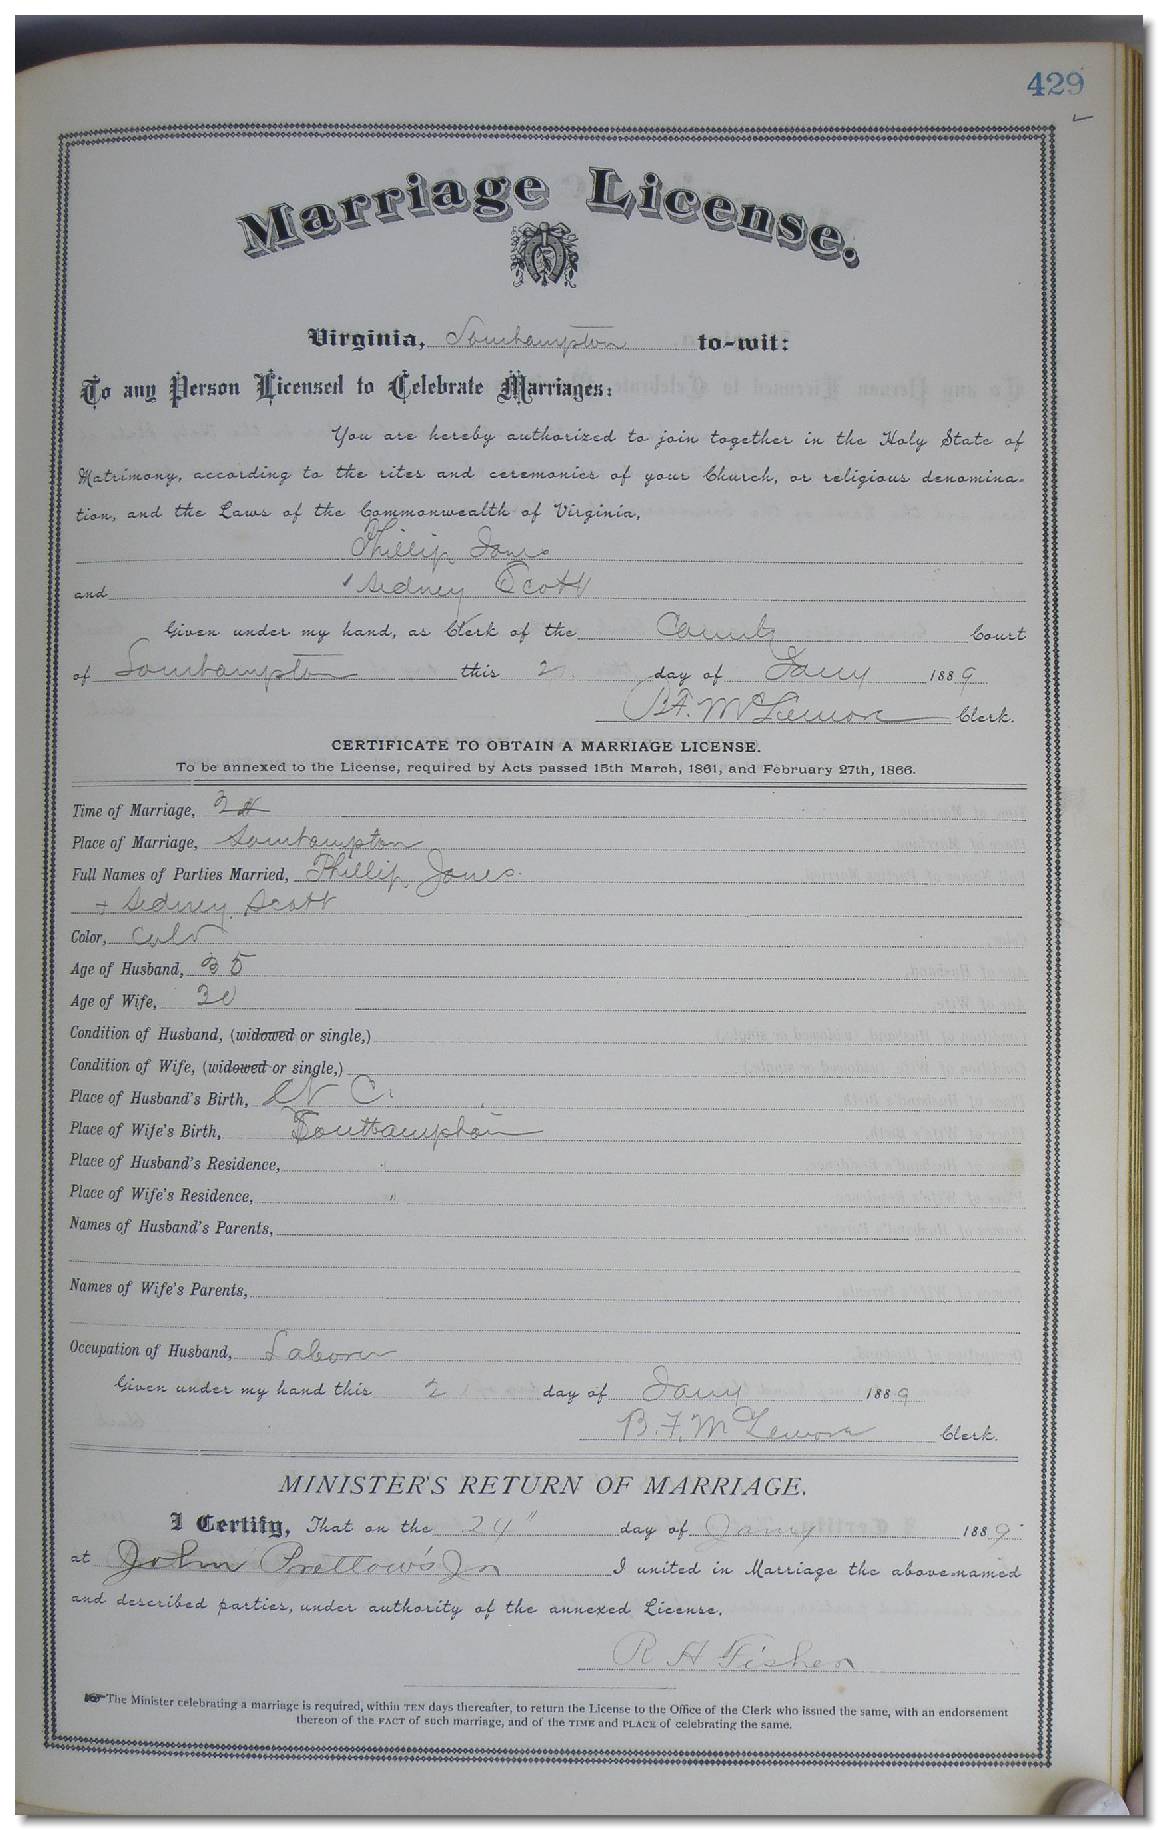 429
Marriage License.
Virginia, Southampton to-wit:
To any Person Licensed to Celebrate Marriages:
You are hereby authorized to join together in the Holy State of
Matrimony, according to the rites and ceremonies of your Church, or religious denomina-
tion, and the Laws of the Commonwealth of Virginia,
Phillip Jones
and Sedney Scott
Given under my hand, as Clerk of the County Court
of Southampton this day of Jany 1889
B.F. McLemore Clerk.
CERTIFICATE TO OBTAIN A MARRIAGE LICENSE.
To be annexed to the License, required by Acts passed 15th March, 1861, and February 27th, 1866.
Time of Marriage,
Place of Marriage, Southampton
Full Names of Parties Married, Phillip Jones
+ Sedney Scott
Color, Cold
Age of Husband, 35
Age of Wife, 30
Condition of Husband, (widowed or single,)
Condition of Wife, (widowed or single,)
Place of Husband's Birth, N C.
Place of Wife's Birth, Southampton
Place of Husband's Residence, "
Place of Wife's Residence, "
Names of Husband's Parents,
Names of Wife's Parents,
Occupation of Husband, Laborer
Given under my hand this day of Jany 1889
B.F. McLemore Clerk.
MINISTER'S RETURN OF MARRIAGE.
I Certify, That on the 24" day of Jany 1889
at John Prettow's Jr I united in Marriage the above-named
and described parties, under authority of the annexed License.
R H Fisher
The Minister celebrating a marriage is required, within TEN days thereafter, to return the License to the Office of the Clerk who issued the same, with an endorsement
thereon of the FACT of such marriage, and of the TIME and PLACE of celebrating the same.